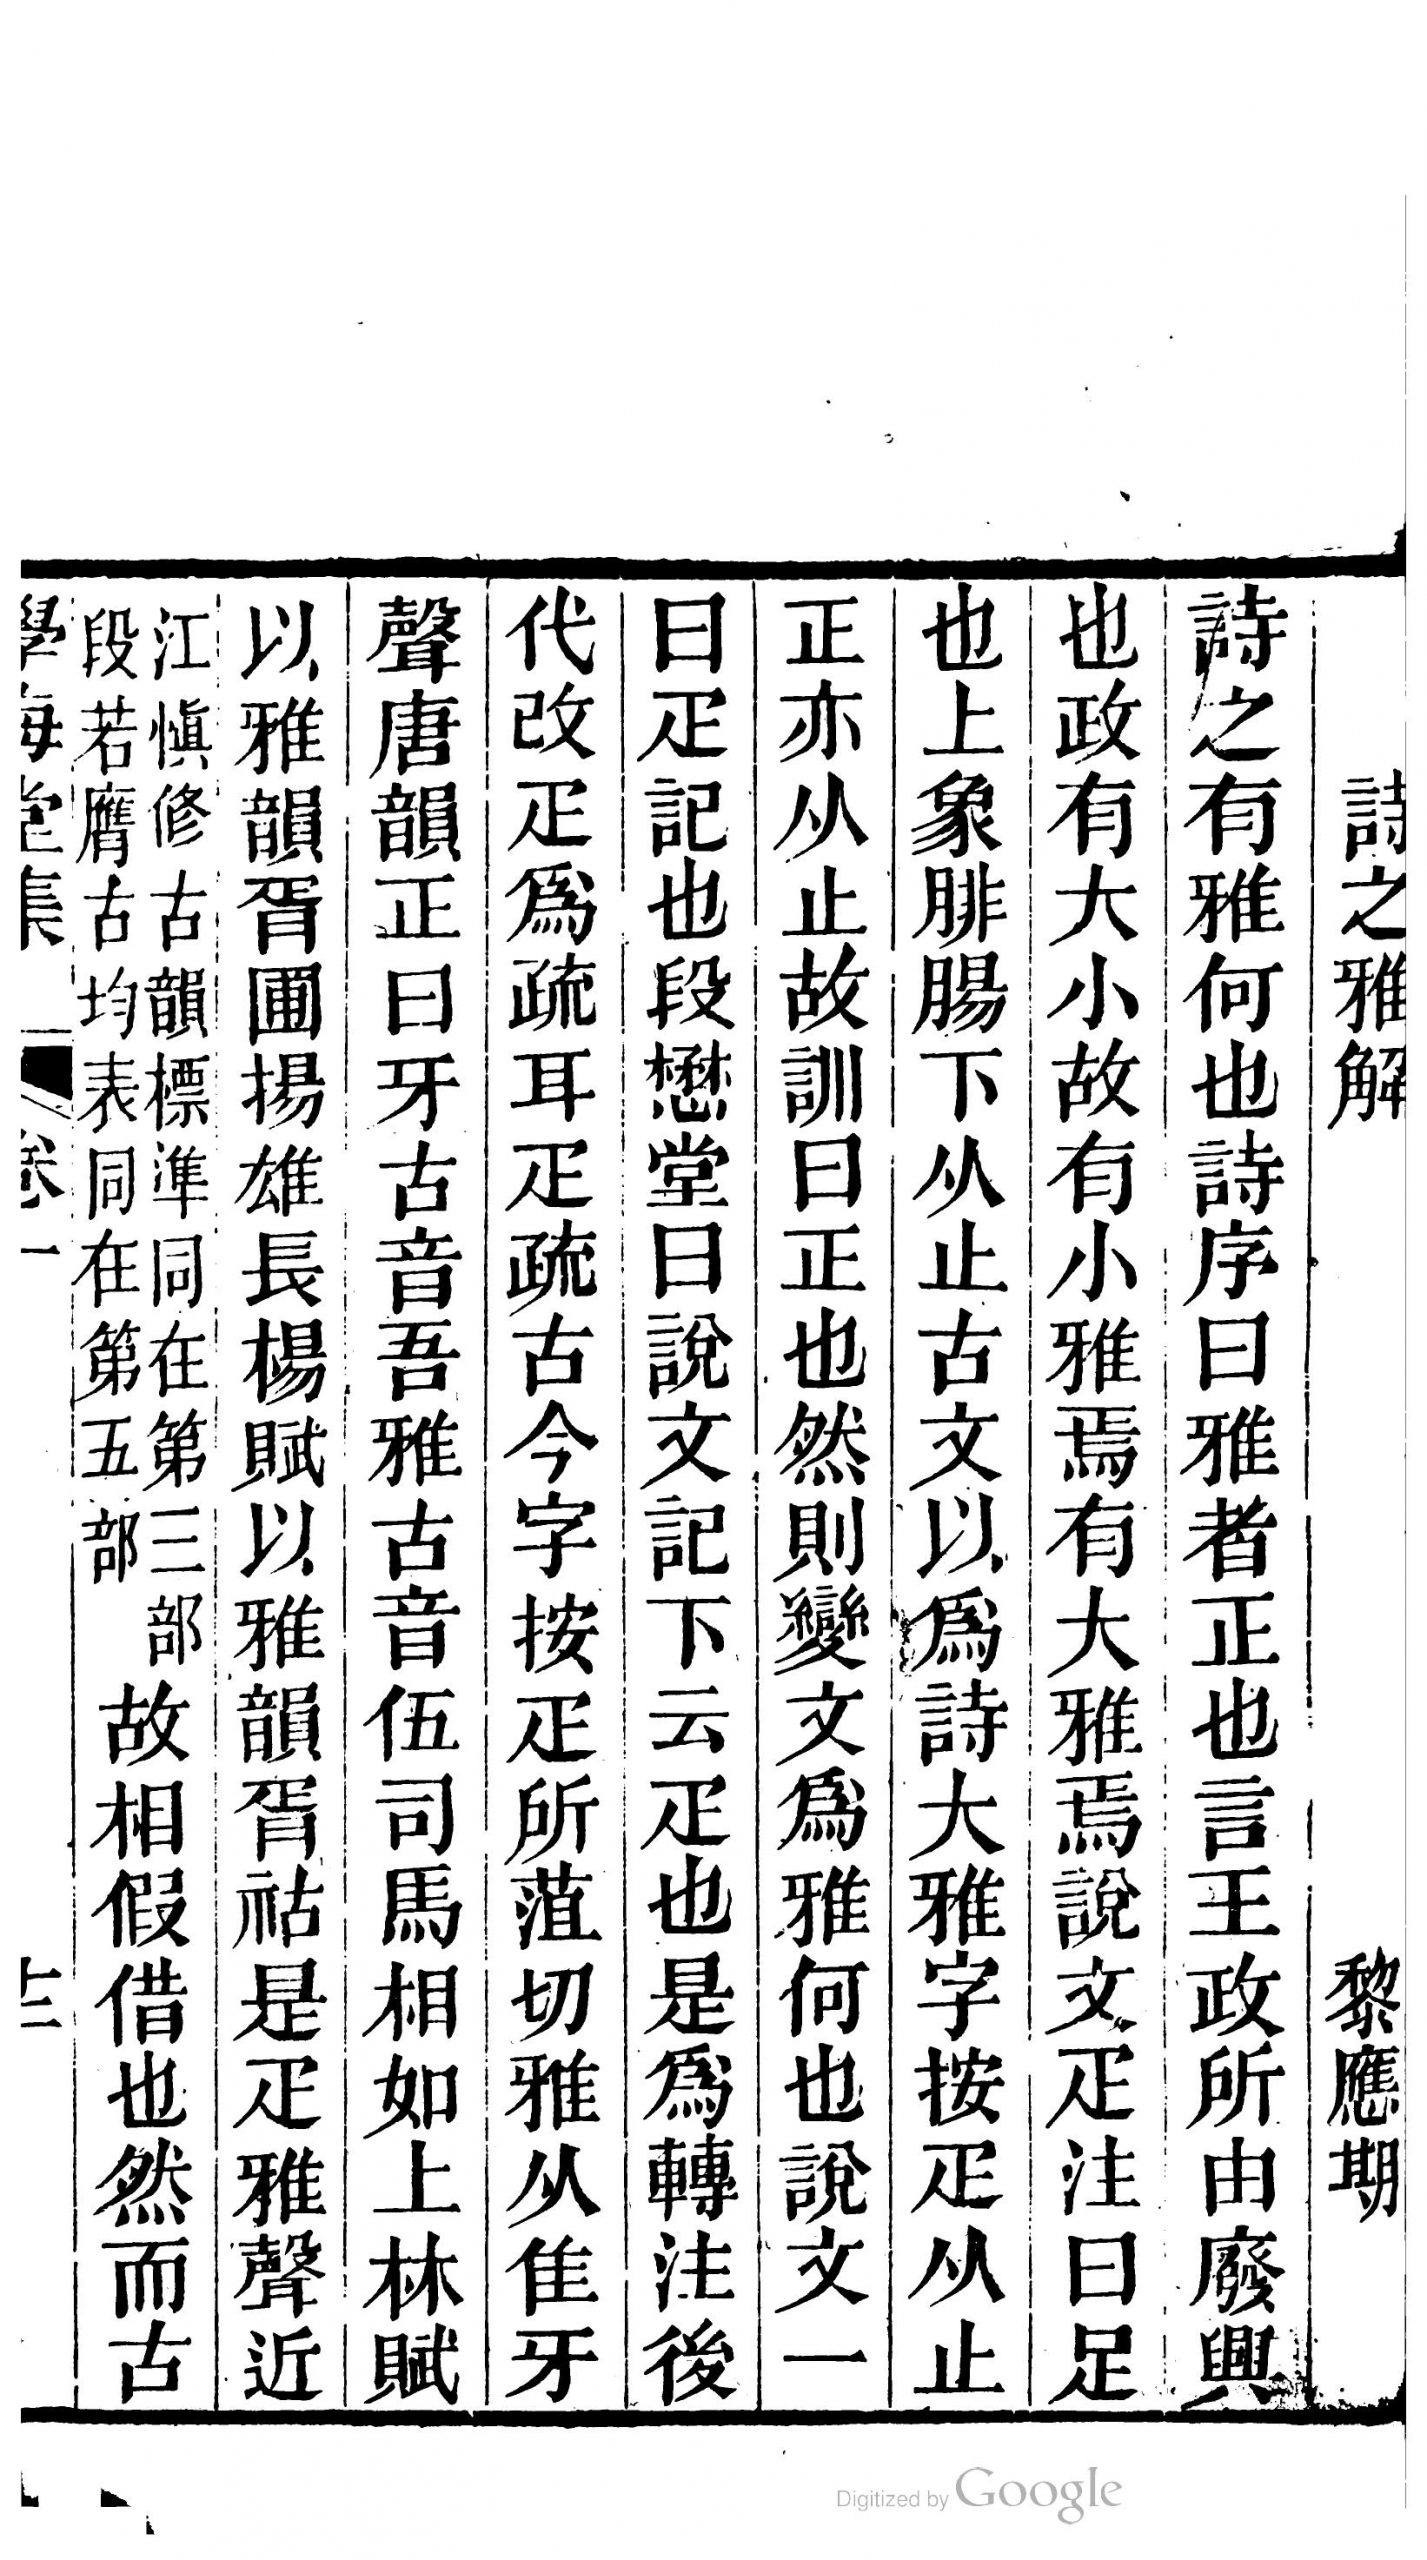 詩之雅解　黎應期
詩之有雅何也詩序曰雅者正也言王政所由廢興
也政有大小故有小雅焉有大雅焉說文疋注曰足
也上象腓腸下从止古文以爲詩大雅字按疋从止
正亦从止故訓曰正也然則變文爲雅何也說文一
曰疋記也段懋堂曰說文記下云疋也是爲轉注後
代改疋爲疏耳疋疏古今字按疋所菹切雅从隹牙
聲唐韻正曰牙古音吾雅古音伍司馬相如上林賦
以雅韻胥圃揚雄長楊賦以雅韻胥祜是疋雅聲近
江慎修古韻標準同在第三部
段若膺古均表同在第五部
故相假借也然而古
學海堂集　卷一　十三
Digitized by Google